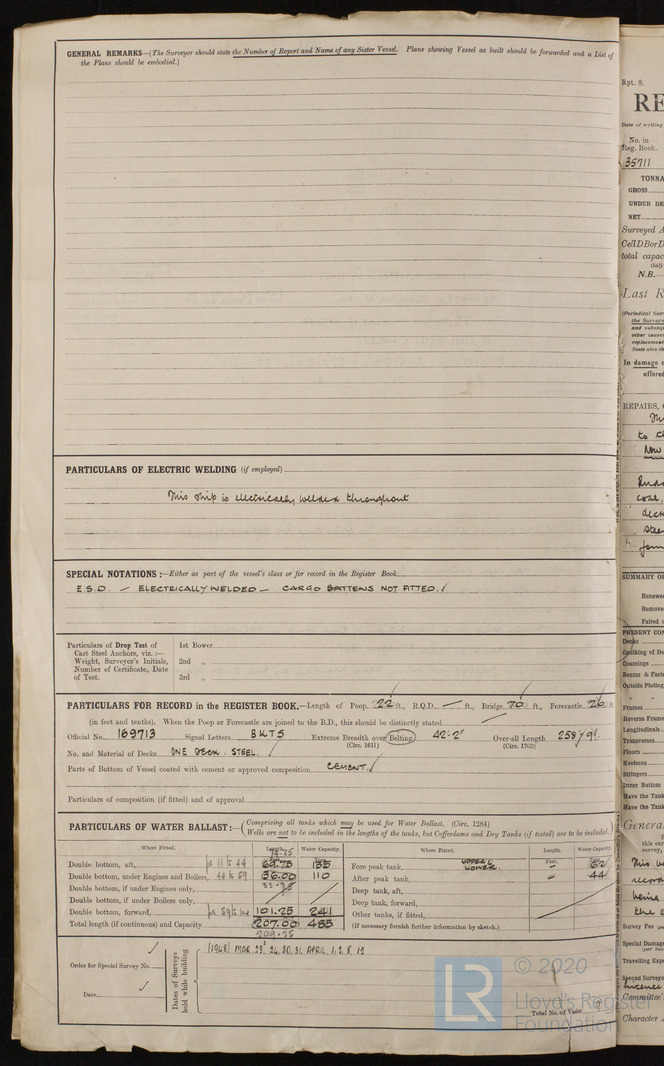 GENERAL REMARKS—(The Surveyor should state the Number of Report and Name of any Sister Vessel. Plans showing Vessel as built should be forwarded and a List of
the Plans should be embodied.)
PARTICULARS OF ELECTRIC WELDING (if employed)
This ship is electrically welded throughout
SPECIAL NOTATIONS :—Either as part of the vessel's class or for record in the Register Book
E S.D. — ELECTRICALLY WELDED — CARGO BATTENS NOT FITTED.
Particulars of Drop Test of
Cast Steel Anchors, viz. :—
Weight, Surveyor's Initials,
Number of Certificate, Date
of Test.
1st Bower
2nd „
3rd „
PARTICULARS FOR RECORD in the REGISTER BOOK.—Length of Poop 22 ft., R.Q.D. — ft., Bridge 70 ft., Forecastle 26 ft
(in feet and tenths). When the Poop or Forecastle are joined to the B.D., this should be distinctly stated
Official No. 169713 Signal Letters BKTS Extreme Breadth over Belting 42'-2" Over-all Length 258' 9"
(Circ. 1611) (Circ. 1703)
No. and Material of Decks ONE DECK. STEEL.
Parts of Bottom of Vessel coated with cement or approved composition CEMENT.
Particulars of composition (if fitted) and of approval
PARTICULARS OF WATER BALLAST:— (Comprising all tanks which may be used for Water Ballast. (Circ. 1284)
Wells are not to be included in the lengths of the tanks, but Cofferdams and Dry Tanks (if tested) are to be included.)
Where Fitted. Length. Water Capacity. Where Fitted. Length. Water Capacity.
Double bottom, aft, 135
Double bottom, under Engines and Boilers, 36.00 110
Double bottom, if under Engines only,
Double bottom, if under Boilers only,
Double bottom, forward, 101.25 241
Total length (if continuous) and Capacity 207.00 485
209.25
Fore peak tank, UPPER & LOWER 62
After peak tank, 44
Deep tank, aft,
Deep tank, forward,
Other tanks, if fitted,
(If necessary furnish further information by sketch.)
Order for Special Survey No.
Date
Dates of Surveys
held while building
(1948) MAR. 23, 24, 30, 31, APRIL. 1, 2, 8, 12
Total No. of Visits 9
© 2020
Lloyd's Register
Foundation
LR
Rpt. 8.
RE
Date of writing
No. in
Reg. Book.
35711
TONNA
GROSS
UNDER DE
NET
Surveyed A
CellDBorD
total capac
N.B.—
Last R
(Periodical Sur
the Surveyo
and subsequ
other cause
replacement
State also th
In damage c
offered
REPAIRS,
to
Now
coal,
deck
SUMMARY OF
Renewe
Remove
Faired o
PRESENT CON
Decks
Caulking of De
Coamings
Beams & Faste
Outside Plating
Frames
Reverse Frame
Longitudinals
Transverses
Floors
Keelsons
Stringers
Inner Bottom
Have the Tank
Have the Tank
General
this sur
survey,
being
the
Survey Fee (pe
Special Damage
(per Sec
Travelling Expe
Second Surveyo
Committee'
Character